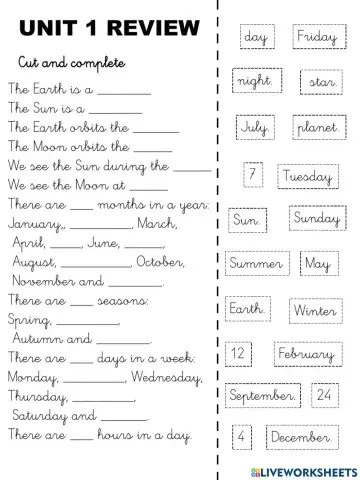 UNIT 1 REVIEW
Cut and complete
The Earth is a ________
The Sun is a ________
The Earth orbits the _______
The Moon orbits the ______
We see the Sun during the ______
We see the Moon at _____
There are ___ months in a year:
January,, ________, March,
April, _____, June, ______,
August, __________, October,
November and ________.
There are ___ seasons:
Spring, _________,
Autumn and ________.
There are ___ days in a week:
Monday, _________, Wednesday,
Thursday, _________,
Saturday and _______.
There are ___ hours in a day.
day Friday
night. star.
July. planet.
7 Tuesday
Sun. Sunday
Summer May
Earth. Winter
12 February
September. 24
4 December.
LIVEWORKSHEETS